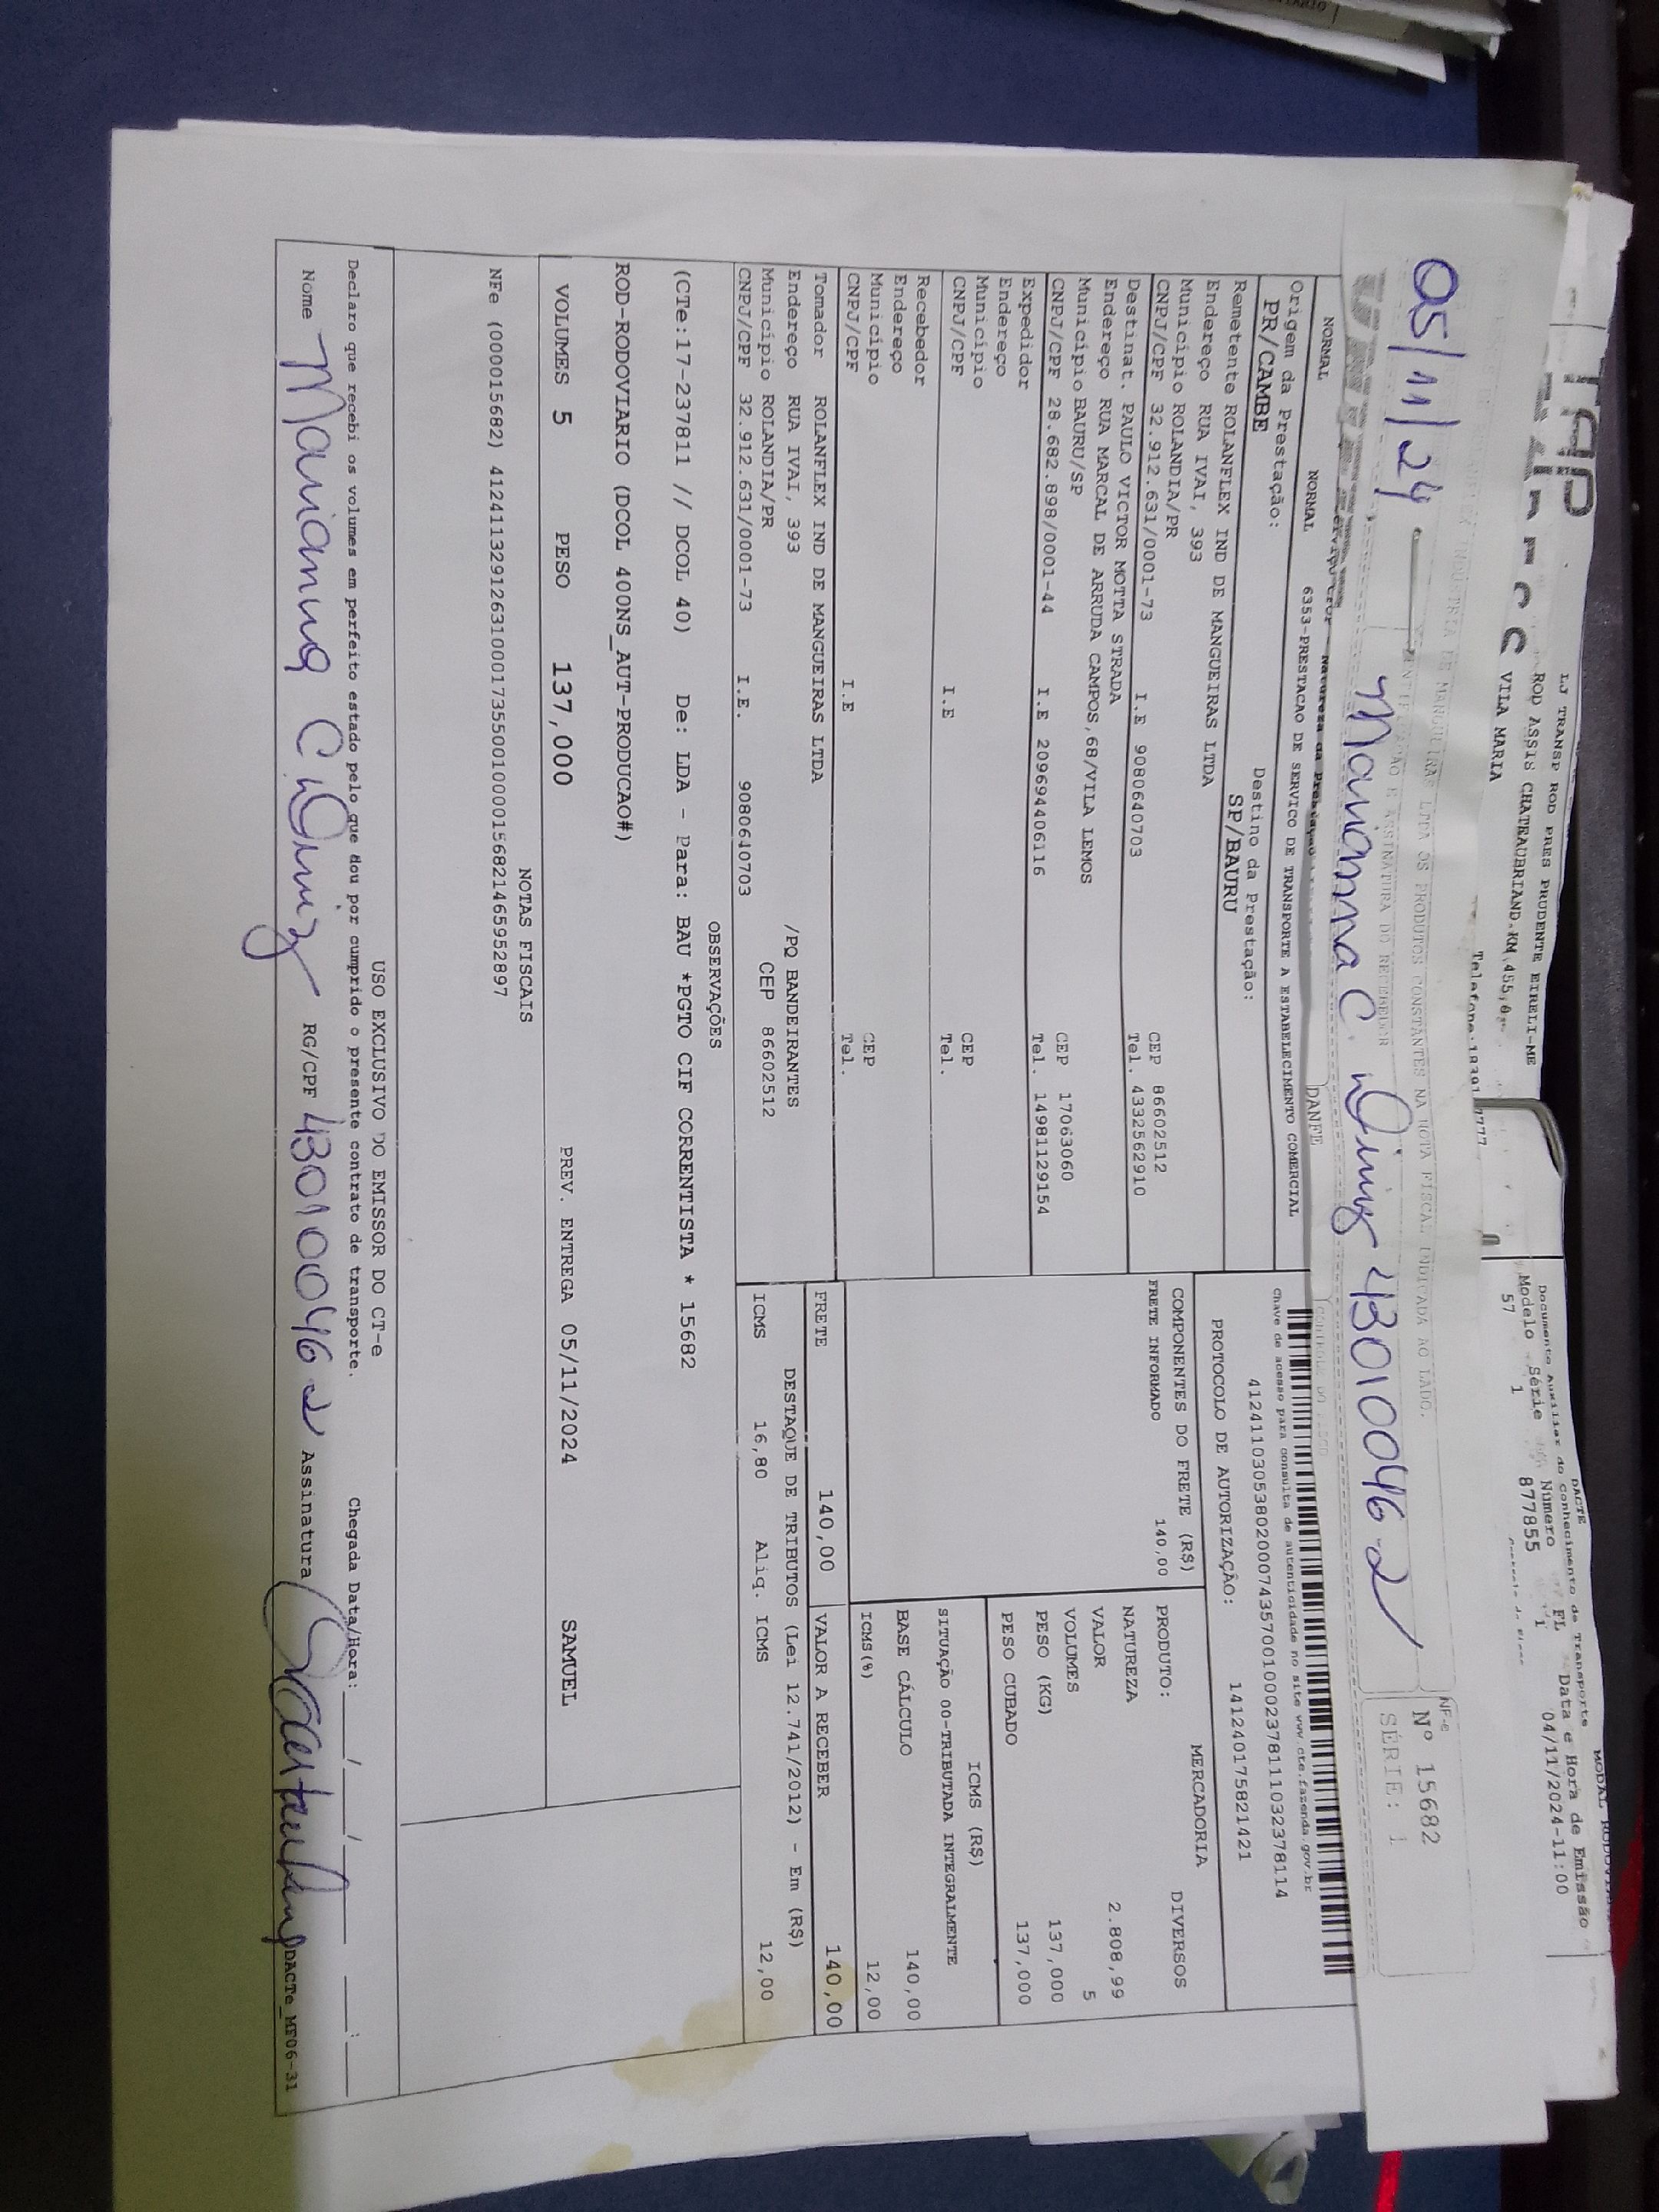 LJ TRANSP ROD PRES PRUDENTE EIRELI-ME
ROD ASSIS CHATEAUBRIAND, KM 455,
VILA MARIA
DACTE
Documento Auxiliar do Conhecimento de Transporte
Modelo Série Número FL Data e Hora de Emissão
57 1 877855 1 04/11/2024-11:00
NF-e
Nº 15682
SÉRIE: 1
05/11/24
43010046-2
DANFE
NORMAL NORMAL 6353-PRESTACAO DE SERVICO DE TRANSPORTE A ESTABELECIMENTO COMERCIAL
Chave de acesso para consulta de autenticidade no site www.cte.fazenda.gov.br
41241103053802000743570010002378111032378114
Origem da Prestação: Destino da Prestação:
PR/CAMBE SP/BAURU
PROTOCOLO DE AUTORIZAÇÃO: 141240175821421
Remetente ROLANFLEX IND DE MANGUEIRAS LTDA
Endereço RUA IVAI, 393
Município ROLANDIA/PR CEP 86602512
CNPJ/CPF 32.912.631/0001-73 I.E 9080640703 Tel. 4332562910
Destinat. PAULO VICTOR MOTTA STRADA
Endereço RUA MARCAL DE ARRUDA CAMPOS,68/VILA LEMOS
Município BAURU/SP CEP 17063060
CNPJ/CPF 28.682.898/0001-44 I.E 209694406116 Tel. 14981129154
Expedidor
Endereço
Município CEP
CNPJ/CPF I.E Tel.
Recebedor
Endereço
Município CEP
CNPJ/CPF I.E Tel.
Tomador ROLANFLEX IND DE MANGUEIRAS LTDA
Endereço RUA IVAI, 393 /PQ BANDEIRANTES
Município ROLANDIA/PR CEP 86602512
CNPJ/CPF 32.912.631/0001-73 I.E. 9080640703
COMPONENTES DO FRETE (R$)
FRETE INFORMADO 140,00
MERCADORIA
PRODUTO: DIVERSOS
NATUREZA
VALOR 2.808,99
VOLUMES 5
PESO (KG) 137,000
PESO CUBADO 137,000
ICMS (R$)
SITUAÇÃO 00-TRIBUTADA INTEGRALMENTE
BASE CÁLCULO 140,00
ICMS(%) 12,00
FRETE 140,00 VALOR A RECEBER 140,00
DESTAQUE DE TRIBUTOS (Lei 12.741/2012) - Em (R$)
ICMS 16,80 Aliq. ICMS 12,00
OBSERVAÇÕES
(CTe:17-237811 // DCOL 40) De: LDA - Para: BAU *PGTO CIF CORRENTISTA * 15682
ROD-RODOVIARIO (DCOL 400NS_AUT-PRODUCAO#)
VOLUMES 5 PESO 137,000 PREV. ENTREGA 05/11/2024 SAMUEL
NOTAS FISCAIS
NFe (000015682) 41241132912631000173550010000156821465952897
USO EXCLUSIVO DO EMISSOR DO CT-e
Declaro que recebi os volumes em perfeito estado pelo que dou por cumprido o presente contrato de transporte. Chegada Data/Hora: ___/___/___ ___:___
Nome RG/CPF 43010046-2 Assinatura
DACTe_MF06-31